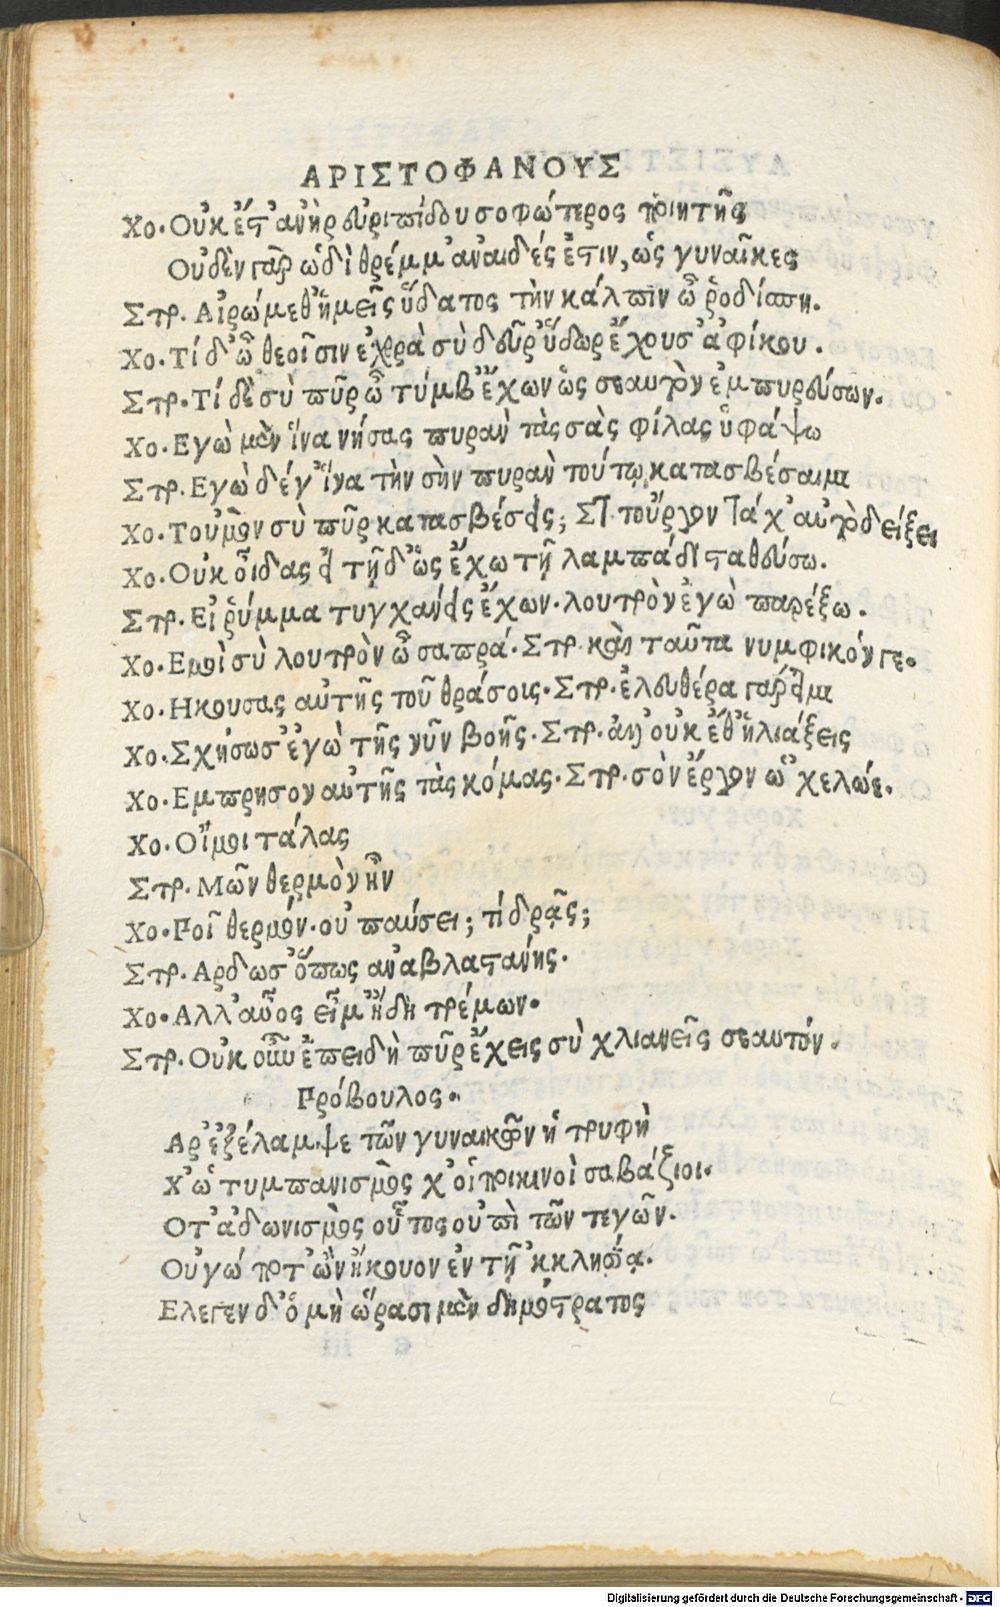 ΑΡΙΣΤΟΦΑΝΟΥΣ
Χο. Οὐκ ἔστ' ἀνὴρ εὐριπίδου σοφώτερος ποιητής
Οὐδὲν γὰρ ὡδὶ θρέμμ' ἀναιδές ἐστιν, ὡς γυναῖκες
Στρ. Αἰρώμεθ' ἡμεῖς ὕδατος τὴν κάλπιν ὦ ῥοδίππη.
Χο. Τί δ' ὦ θεοῖσιν ἐχθρὰ σὺ δεῦρ' ὕδωρ ἔχουσ' ἀφίκου.
Στρ. Τί δὲ σὺ πῦρ ὦ τύμβ' ἔχων ὡς σεαυτὸν ἐμπυρεύσων.
Χο. Εγὼ μὲν ἵνα νήσας πυρὰν τὰς σὰς φίλας ὑφάψω
Στρ. Εγὼ δέ γ' ἵνα τὴν σὴν πυρὰν τούτῳ κατασβέσαιμι
Χο. Τοὐμὸν σὺ πῦρ κατασβέσεις; ΣΤ. τοὔργον τάχ' αὐτὸ δείξει
Χο. Οὐκ οἶδας εἰ τῇδ' ὡς ἔχω τῇ λαμπάδι σταθεύσω.
Στρ. Εἰ ῥύμμα τυγχάνεις ἔχων. λουτρὸν ἐγὼ παρέξω.
Χο. Εμοὶ σὺ λουτρὸν ὦ σαπρά. Στρ. καὶ ταῦτα νυμφικόν γε.
Χο. Ηκουσας αὐτῆς τοῦ θράσοις. Στρ. ἐλευθέρα γάρ εἰμι
Χο. Σχήσωσ' ἐγὼ τῆς νῦν βοῆς. Στρ. ἀλλ' οὐκ ἔθ' ἡλιάξεις
Χο. Εμπρησον αὐτῆς τὰς κόμας. Στρ. σὸν ἔργον ὦ 'χελώε.
Χο. Οἴμοι τάλας
Στρ. Μῶν θερμὸν ἦν
Χο. Ποῖ θερμόν. οὐ παύσει; τί δρᾷς;
Στρ. Αρδω σ' ὅπως ἀναβλαστάνῃς.
Χο. Αλλ' αὖος εἶμ' ἤδη τρέμων.
Στρ. Οὐκοῦν ἔπειδὴ πῦρ ἔχεις σὺ χλιανεῖς σεαυτόν.
Πρόβουλος.
Αρ' ἐξέλαμψε τῶν γυναικῶν ἡ τρυφὴ
Χ' ὡ τυμπανισμὸς χ' οἱ πυκινοὶ σαβάξιοι.
Οτ' ἀδωνισμὸς οὗτος οὑπὶ τῶν τεγῶν.
Οὑγώ ποτ' ὢν ἤκουον ἐν τῇ 'κκλησίᾳ.
Ελεγεν δ' ὁ μὴ ὥρασι μὲν δημόστρατος
Digitalisierung gefördert durch die Deutsche Forschungsgemeinschaft - DFG